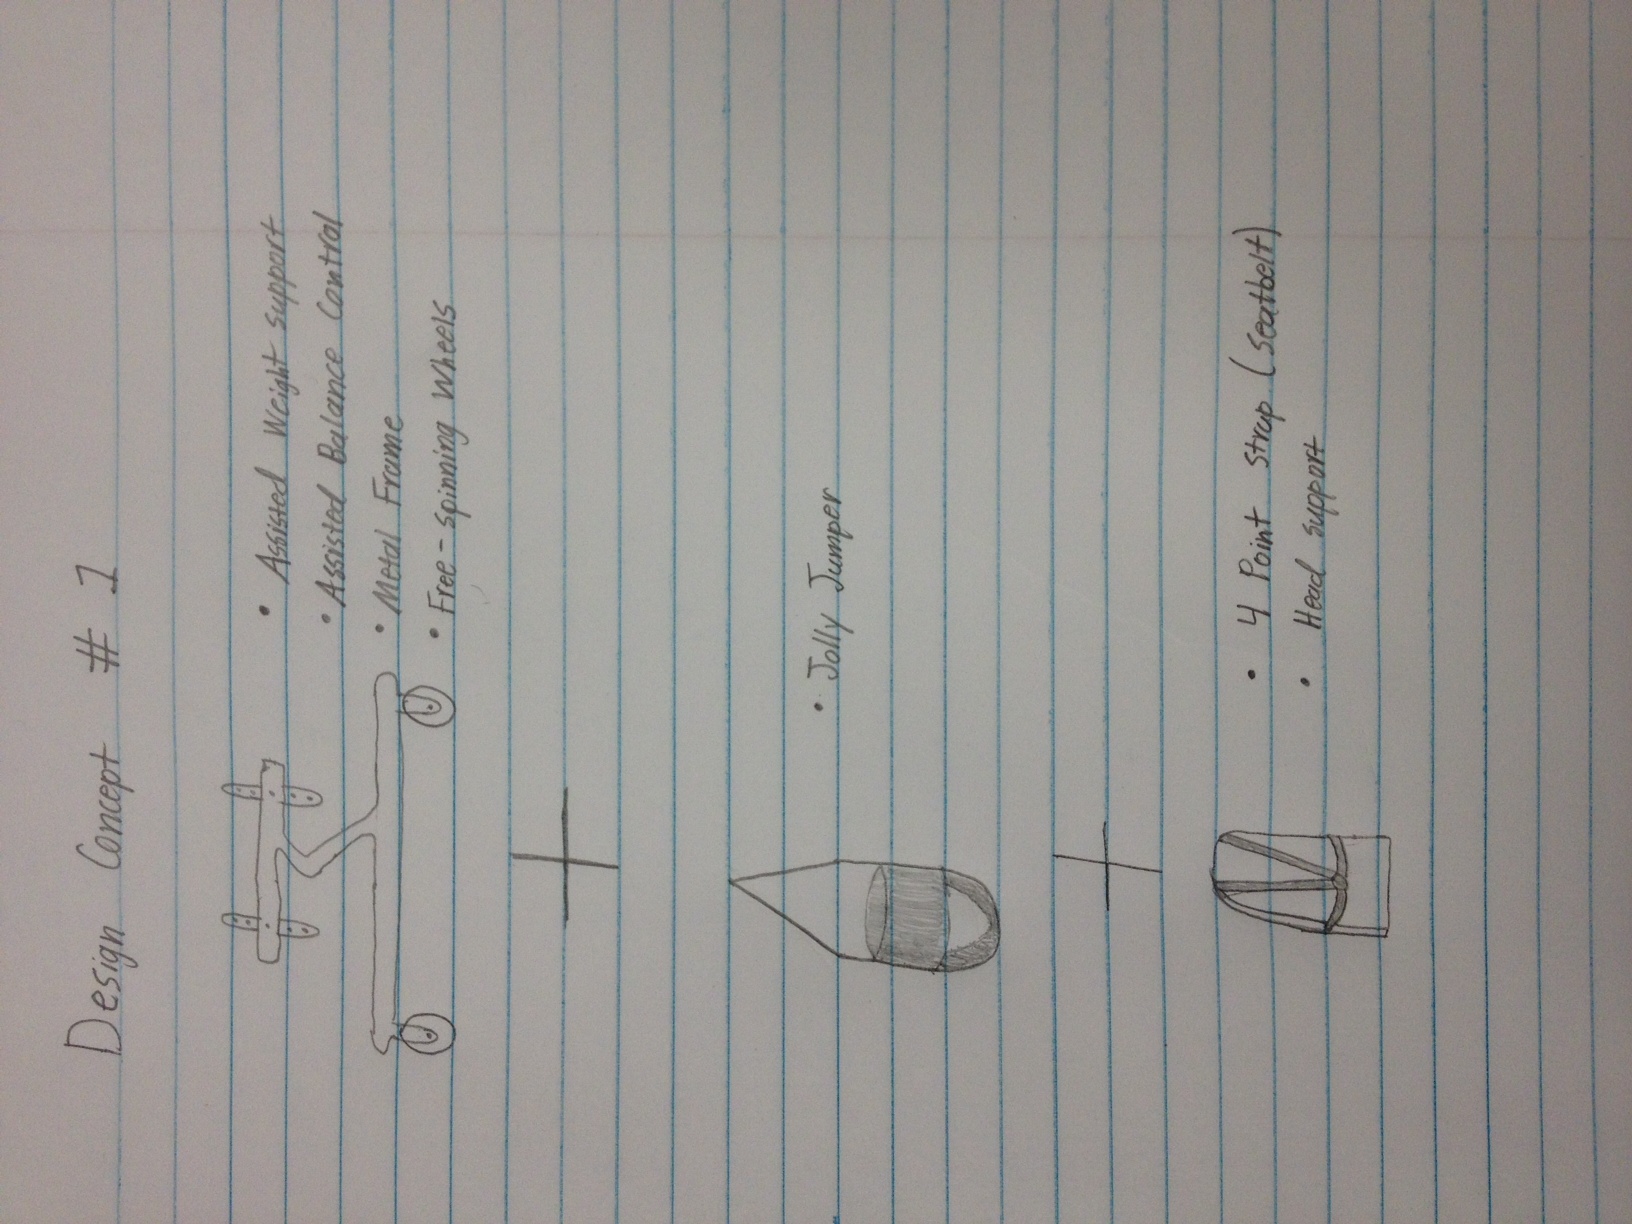 Design Concept # 1
• Assisted Weight support
• Assisted Balance Control
• Metal Frame
• Free-spinning Wheels
• Jolly Jumper
• 4 Point strap (seatbelt)
• Head support